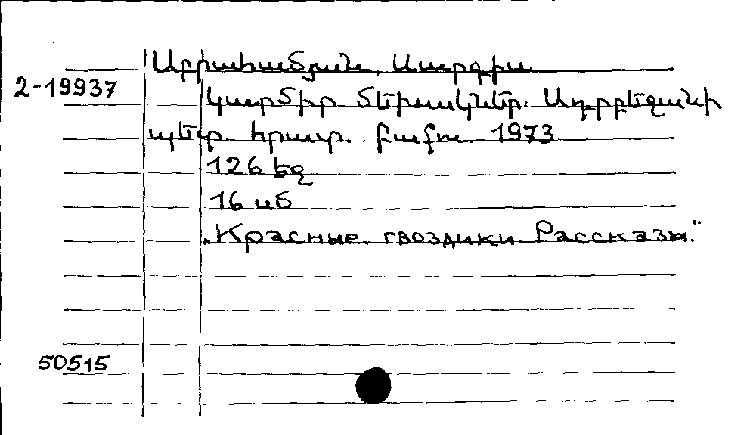 Աբրահամյան, Սարգիս
2-19937
Կարմիր մեխակներ. Ադրբեջանի
պետ. հրատ. Բաքու. 1973
126 եջ
16 սմ
„Красные гвоздики. Рассказы."
50515